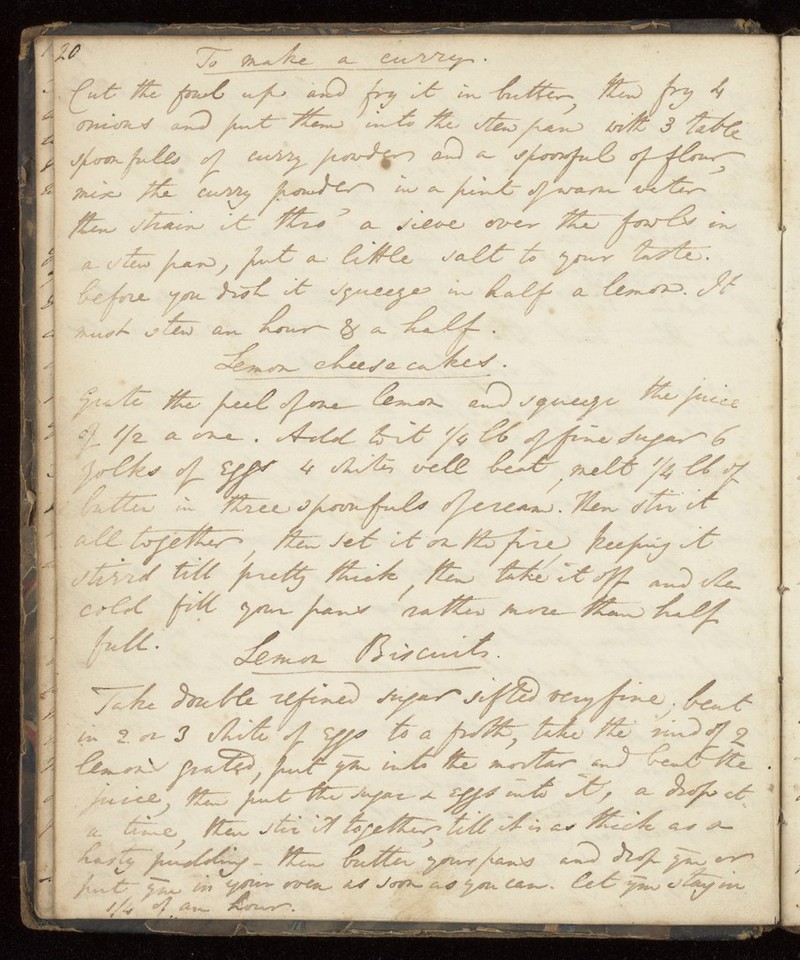 20
To make a curry.
Cut the fowl up and fry it in butter, then fry 4
onions and put them into the stew pan with 3 table
spoonfulls of curry powder and a spoonful of flour,
mix the curry powder in a pint of warm water
then strain it thro' a sieve over the fowls in
a stew pan, put a little salt to your taste.
before you dish it squeeze in half a lemon. It
must stew an hour & a half.
Lemon cheesecakes.
Grate the peel of one lemon and squeeze the juice
of 1/2 a one. Add to it 1/4 lb of fine sugar 6
yolks of eggs 4 whites well beat, melt 1/4 lb of
butter in three spoonfuls of cream. Then stir it
all together, then set it on the fire, keeping it
stirrd till pretty thick, then take it off and when
cold fill your pans rather more than half
full.
Lemon Biscuits.
Take double refined sugar sifted very fine, beat
in 2 or 3 white of eggs to a froth, take the rind of 2
lemons grated, put ym into the mortar and beat the
juice, then put the sugar & eggs into it, a drop at
a time, then stir it together till it is as thick as a
hasty pudding - then butter your pans and drop ym or
put ym in your oven as soon as you can. Let ym stay in
1/4 of an hour.